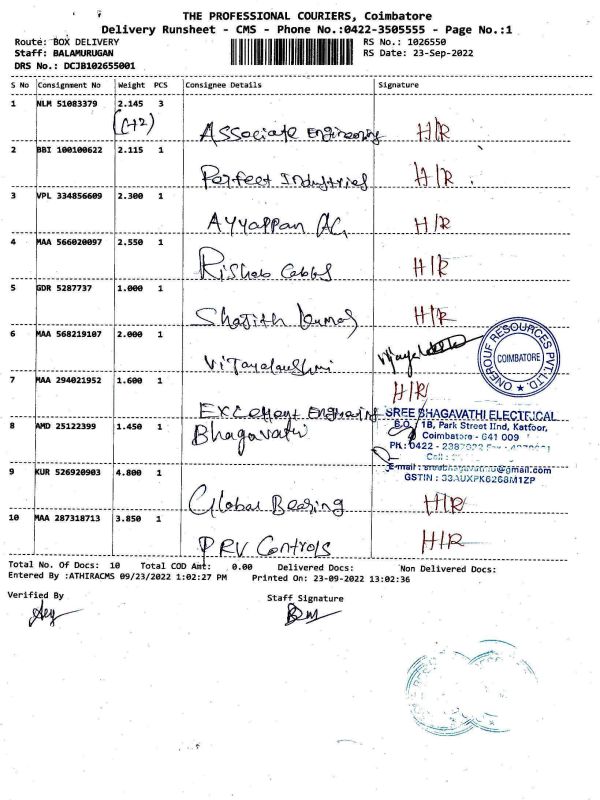 THE PROFESSIONAL COURIERS, Coimbatore
Delivery Runsheet - CMS - Phone No.:0422-3505555 - Page No.:1
Route: BOX DELIVERY RS No.: 1026550
Staff: BALAMURUGAN RS Date: 23-Sep-2022
DRS No.: DCJB102655001
S No Consignment No Weight PCS Consignee Details Signature
1 NLM 51083379 2.145 3
(C+2) Associate Engineering H/R
2 BBI 100100622 2.115 1
Perfect Industries H/R
3 VPL 334856609 2.300 1
Ayyappan H/R
4 MAA 566020097 2.550 1
Rishab H/R
5 GDR 5287737 1.000 1
Shajith Kumar H/R
6 MAA 568219107 2.000 1
Vijayalaxhmi
ONEROUF RESOURCES PVT. LTD.
COIMBATORE
7 MAA 294021952 1.600 1 H/R
Excellent Engineering
8 AMD 25122399 1.450 1
Bhagavathi
SREE BHAGAVATHI ELECTRICAL
B.O. 1B, Park Street IInd, Katfoor,
Coimbatore - 641 009
PH : 0422 -
Cell :
E-mail : @gmail.com
GSTIN : 33AUXPK6268M1ZP
9 KUR 526920903 4.800 1
Global Bearing H/R
10 MAA 287318713 3.850 1
PRV Controls H/R
Total No. Of Docs: 10 Total COD Amt: 0.00 Delivered Docs: Non Delivered Docs:
Entered By :ATHIRACMS 09/23/2022 1:02:27 PM Printed On: 23-09-2022 13:02:36
Verified By Staff Signature